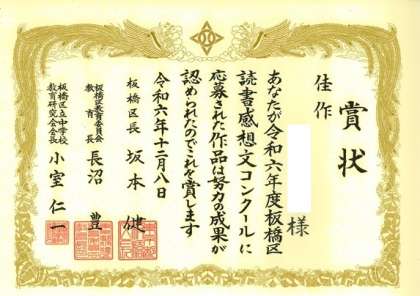 賞状
佳作
様
あなたが令和六年度板橋区
読書感想文コンクールに
応募された作品は努力の成果が
認められたのでこれを賞します
令和六年十二月八日
板橋区長 坂本 健
板橋区教育委員会
教育長 長沼 豊
板橋区立中学校
教育研究会会長 小室 仁一